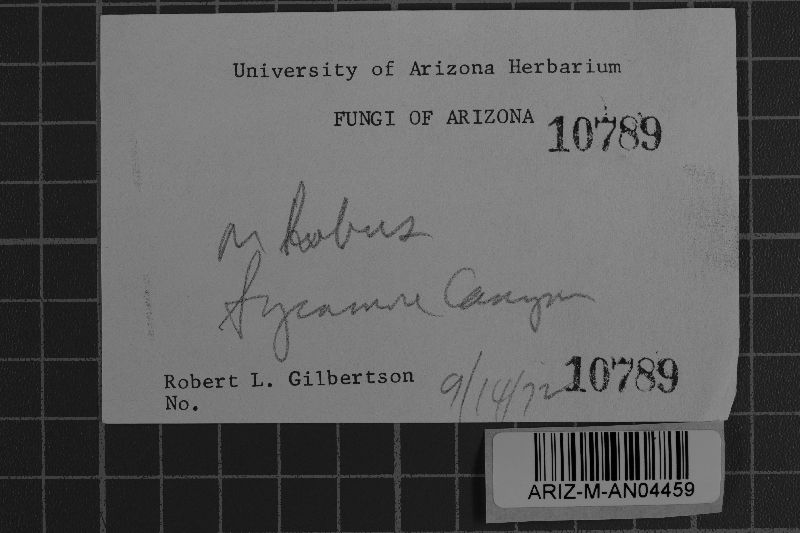 University of Arizona Herbarium
FUNGI OF ARIZONA 10789
on
Sycamore Canyon
Robert L. Gilbertson 9/14/72 10789
No.
ARIZ-M-AN04459